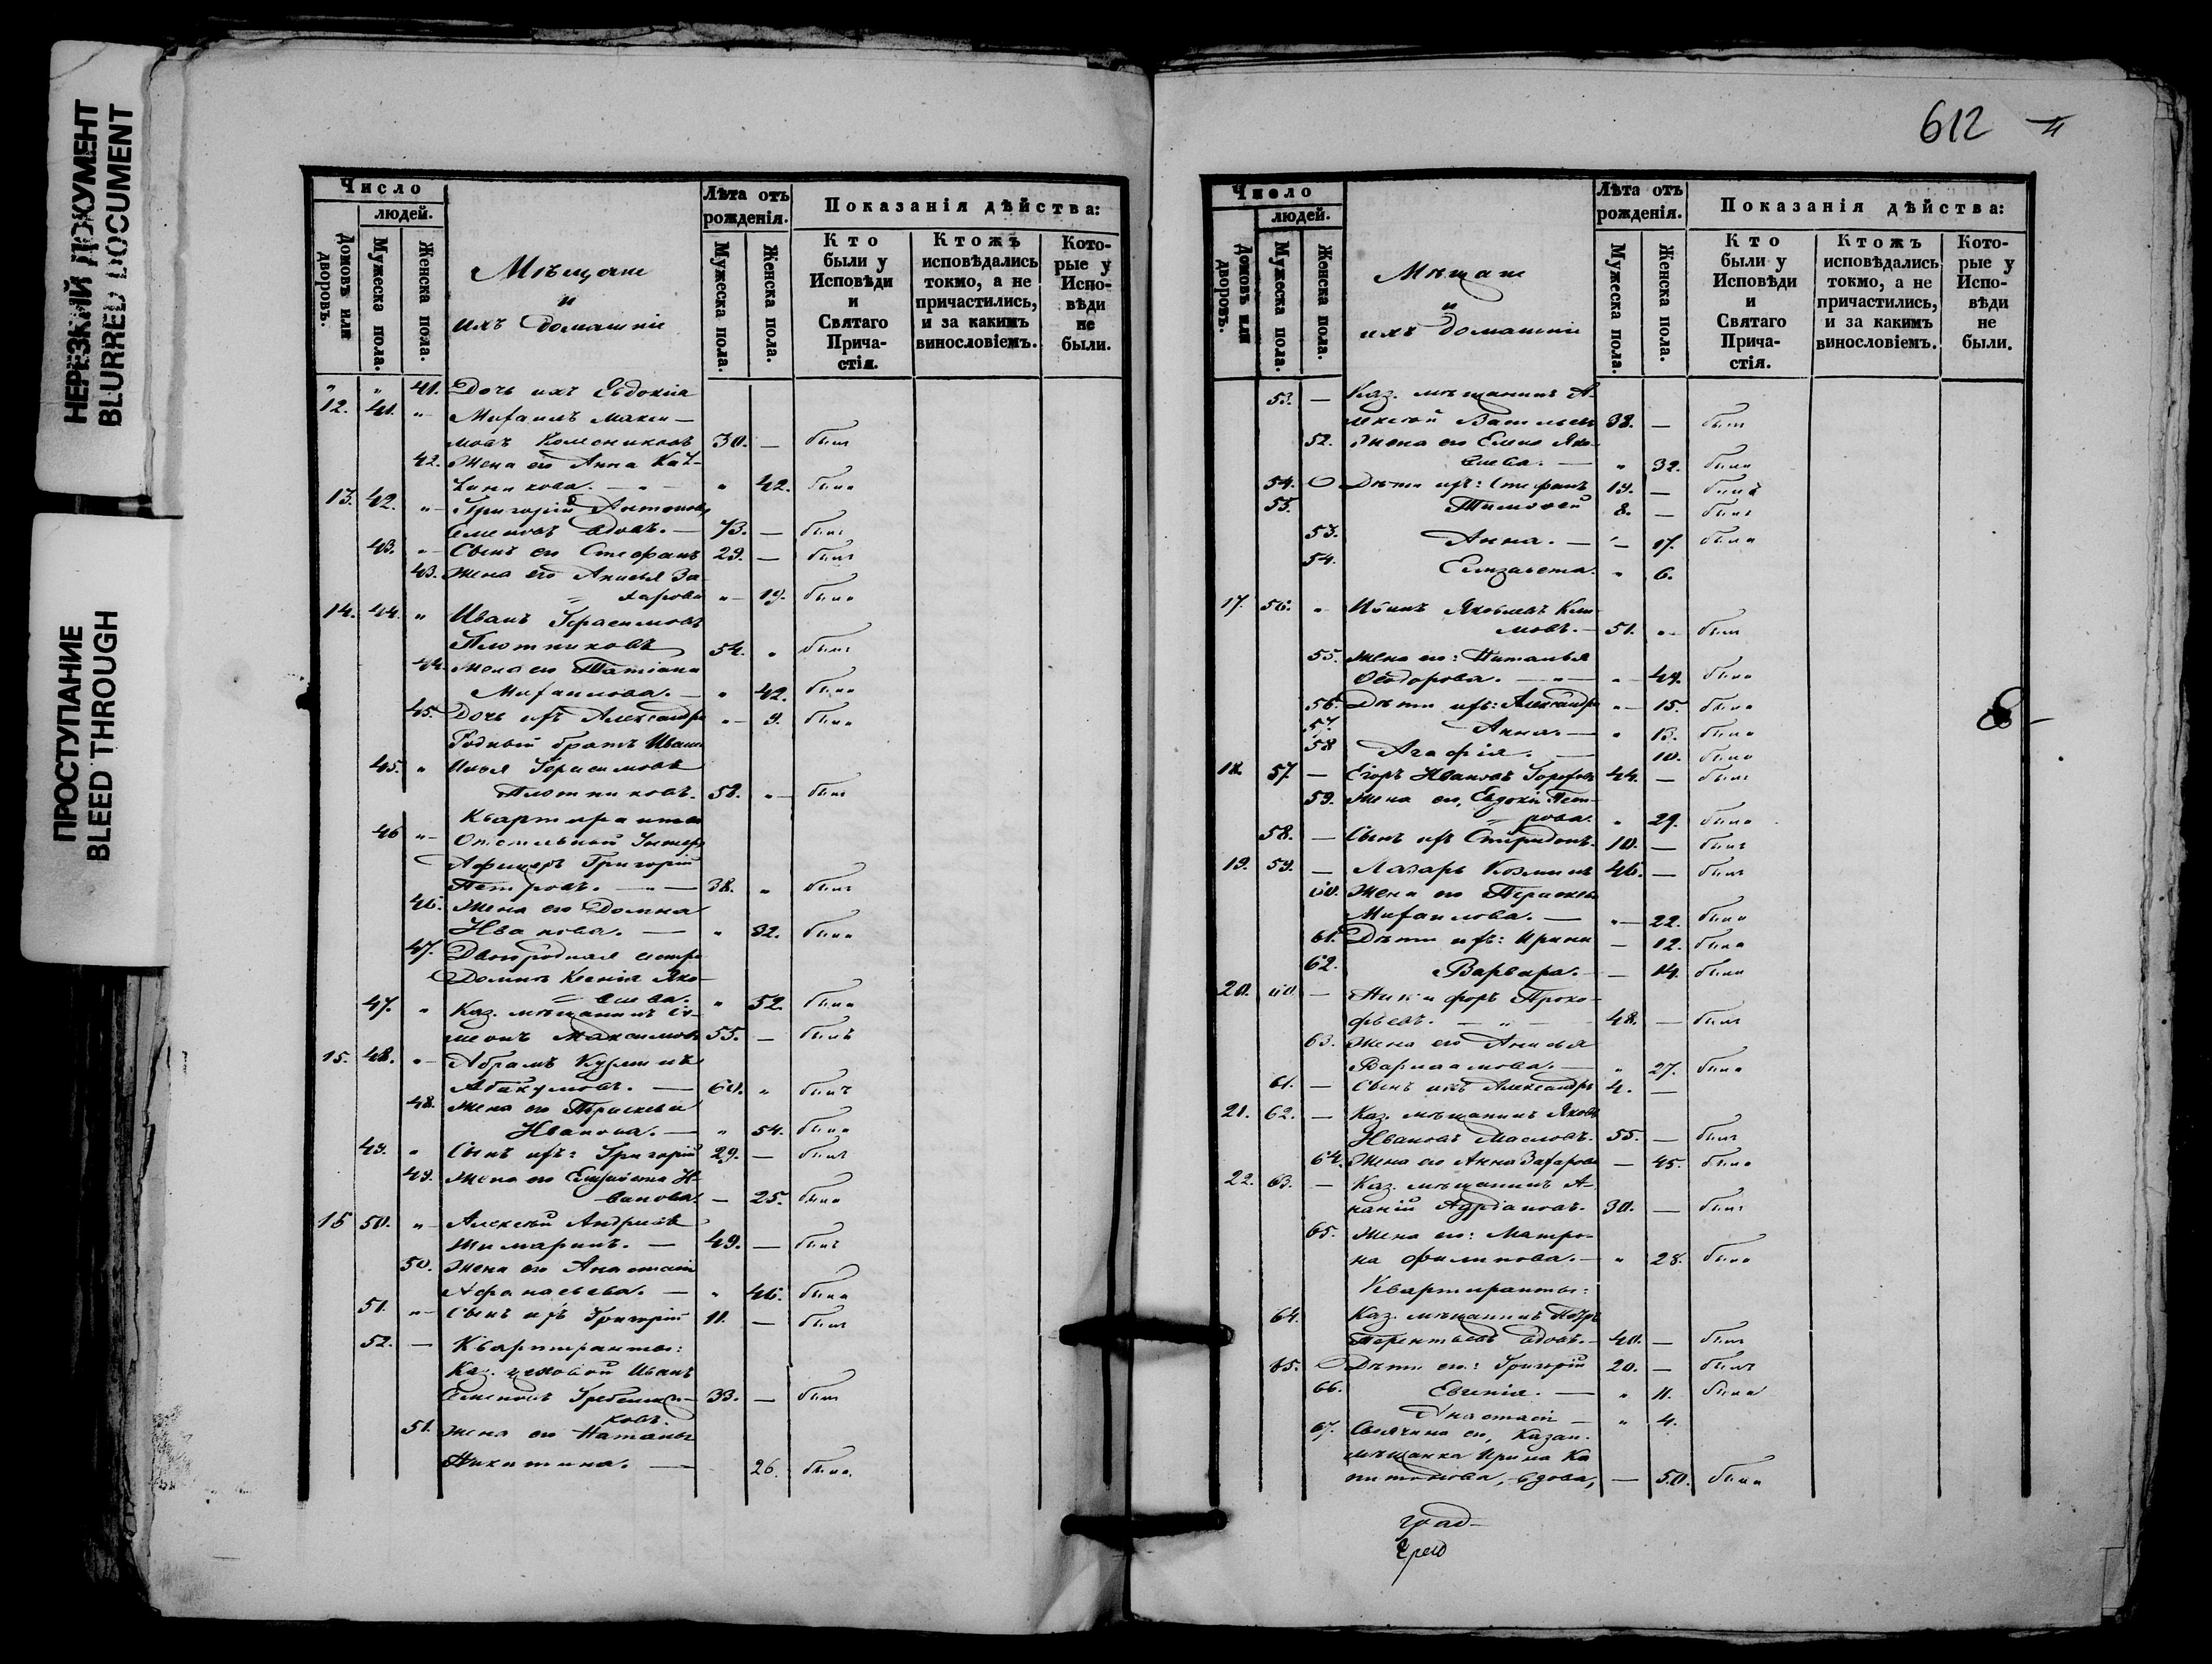 НЕРЕЗКИЙ ДОКУМЕНТ
BLURRED DOCUMENT
ПРОСТУПАНИЕ
BLEED THROUGH
Число
людей.
Домовъ или дворовъ.
Мужеска пола.
Женска пола.
Мѣщане
и
ихъ домашніе
Лѣта отъ рожденія.
Мужеска пола.
Женска пола.
Показанія дѣйства:
Кто были у Исповѣди и Святаго Прича-стія.
Ктожъ исповѣдались токмо, а не причастились, и за какимъ винословіемъ.
Кото-рые у Испо-вѣди не были.
" " 41. Дочь ихъ Евдокія
12. 41. " Михаилъ Макси-
мовъ Колесниковъ 30. — былъ
42. Жена его Анна
" 42. была
13. 42. " Григорій Антоновъ
Семеновъ вдовъ. — 73. — былъ
43. " Сынъ его Стефанъ 29. — былъ
43. Жена его Анисья За-
харова " 19. была
14. 44. " Иванъ Герасимовъ
Плотниковъ 54. " былъ
44. Жена его Татіана
Михаилова. — " 42. была
45. Дочь ихъ Александра " 9. была
Родный братъ Ивана
45. " Илья Герасимовъ
Плотниковъ. 58. " былъ
Квартиранты
46 " Отставной Унтеръ
Афицеръ Григорій
Петровъ. — 38. " былъ
46. Жена его Домна
Иванова. — " 32. была
47. Двоюродная сестра
Домны Ксенія Яко-
влева. " 52. была
47. " Каз. мѣщанинъ Си-
меонъ Максимовъ 55. — былъ
15. 48. " Абрамъ Кузминъ
Абакумовъ. — 60. " былъ
48. Жена его Параскева
Иванова. — " 54. была
49. " Сынъ ихъ: Григорій 29. — былъ
49. Жена его Елизавета И-
ванова. — 25. была
16 50. " Алексѣй Андреевъ
Шимаринъ. — 49. — былъ
50. Жена его Анастасія
Афанасьева. — " 46. была
51. " Сынъ ихъ Григорій 11. — былъ
52. — Квартиранты:
Каз. цеховой Иванъ
Семеновъ Гребенщи-
ковъ. 33. — былъ
51. Жена его Наталья
Никитина. — 26. была
612
Число
людей.
Домовъ или дворовъ.
Мужеска пола.
Женска пола.
Мѣщане
и
ихъ домашніе
Лѣта отъ рожденія.
Мужеска пола.
Женска пола.
Показанія дѣйства:
Кто были у Исповѣди и Святаго Прича-стія.
Ктожъ исповѣдались токмо, а не причастились, и за какимъ винословіемъ.
Кото-рые у Испо-вѣди не были.
53. — Каз. мѣщанинъ А-
лексѣй Васильевъ 38. — былъ
52. Жена его Елена Яко-
влева. — " 32. была
54. Дѣти ихъ: Стефанъ — былъ
55. Тимофей 8. — былъ
53. Анна. — 17. была
54. Елизавета. " 6.
17. 56. " Яковлевъ Кли-
мовъ. — 51. " былъ
55. Жена его: Наталья
Ѳеодорова. — " 49. была
56. Дѣти ихъ: Александра " 15. была
57. Анна. — " 13. была
58 Агафія. — 10. была
18. 57. — Егоръ Ивановъ 44. — былъ
59. Жена его, Евдокія Пет-
рова. " 29. была
58. — Сынъ ихъ Спиридонъ. 10. — былъ
19. 59. — Лазарь Козминъ 46. — былъ
60. Жена его Параскева
Михаилова. — " 22. была
61. Дѣти ихъ: Ирина — 12. была
62. Варвара. — 14. была
20. 60. — Никифоръ Проко-
фьевъ. — " — 48. — былъ
63. Жена его Анисья
Варлаамова. — " 27. была
61. — Сынъ ихъ Александръ 4. —
21. 62. — Каз. мѣщанинъ Яковъ
Ивановъ Масловъ. 55. — былъ
64. Жена его Анна Захарова — 45. была
22. 63. — Каз. мѣщанинъ А-
наній Адріановъ. 30. — былъ
65. Жена его: Матро-
на Филипова. — " 28. была
Квартиранты:
64. Каз. мѣщанинъ Петръ
Терентьевъ вдовъ. — 40. — былъ
65. Дѣти его: Григорій 20. — былъ
66. Евгенія. — " 11. была
Анастасія — " 4.
67. его, Казан.
мѣщанка Ирина Ка
питонова, вдова, — 50. была